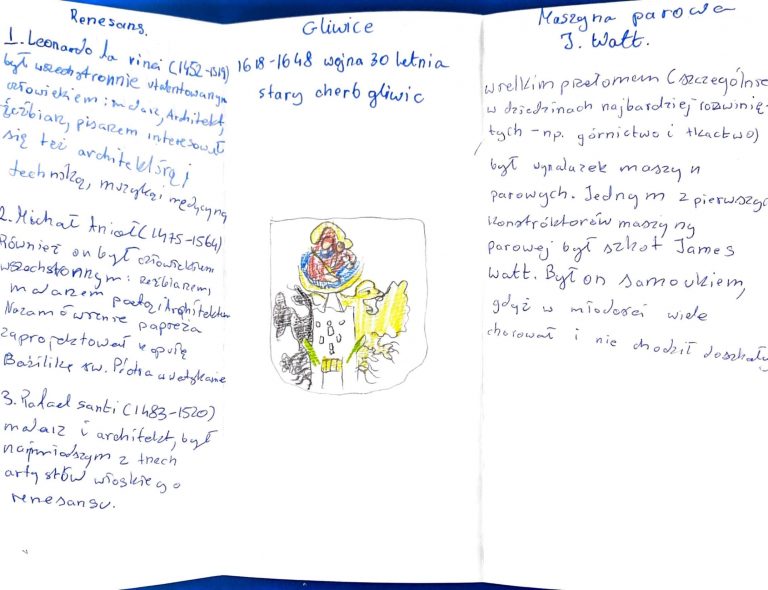 Renesans.
1. Leonardo da vinci (1452-1519)
był wszechstronnie utalentowanym
człowiekiem: malarz, Architekt,
rzeźbiarz, pisarzem interesował
się też architekturą i
techniką, muzyką i medycyną
2. Michał Anioł (1475-1564)
Również on był człowiekiem
wszechstonnym: rzeźbiarzem,
malarzem poetą i Architektem
Na zamówienie papieża
zaprojektował kopułę
Bazilikę św. Piotra w watykanie
3. Rafael santi (1483-1520)
malarz i architekt, był
najmłodszym z trzech
artystów włoskiego
renesansu.
Gliwice
1618-1648 wojna 30 letnia
stary cherb gliwic
Maszyna parowa
J. Watt.
wielkim przełomem (szczególnie
w dziedzinach najbardziej rozwinię-
tych - np. górnictwo i tkactwo)
był wynalazek maszyn
parowych. Jednym z pierwszych
konstróktorów maszyny
parowej był szkot James
Watt. Był on samoukiem,
gdyż w młodości wiele
chorował i nie chodził do szkoły